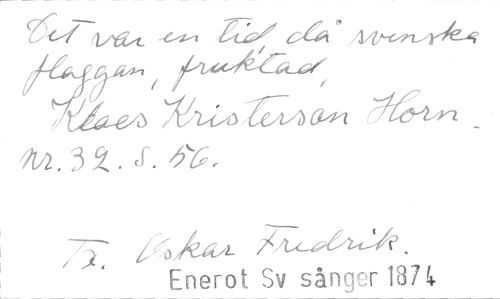 Det var en tid, då svenska
flaggan, fruktad,
Klaes Kristerson Horn.
nr. 32. s. 56.
Tx. Oskar Fredrik.
Enerot Sv sånger 1874